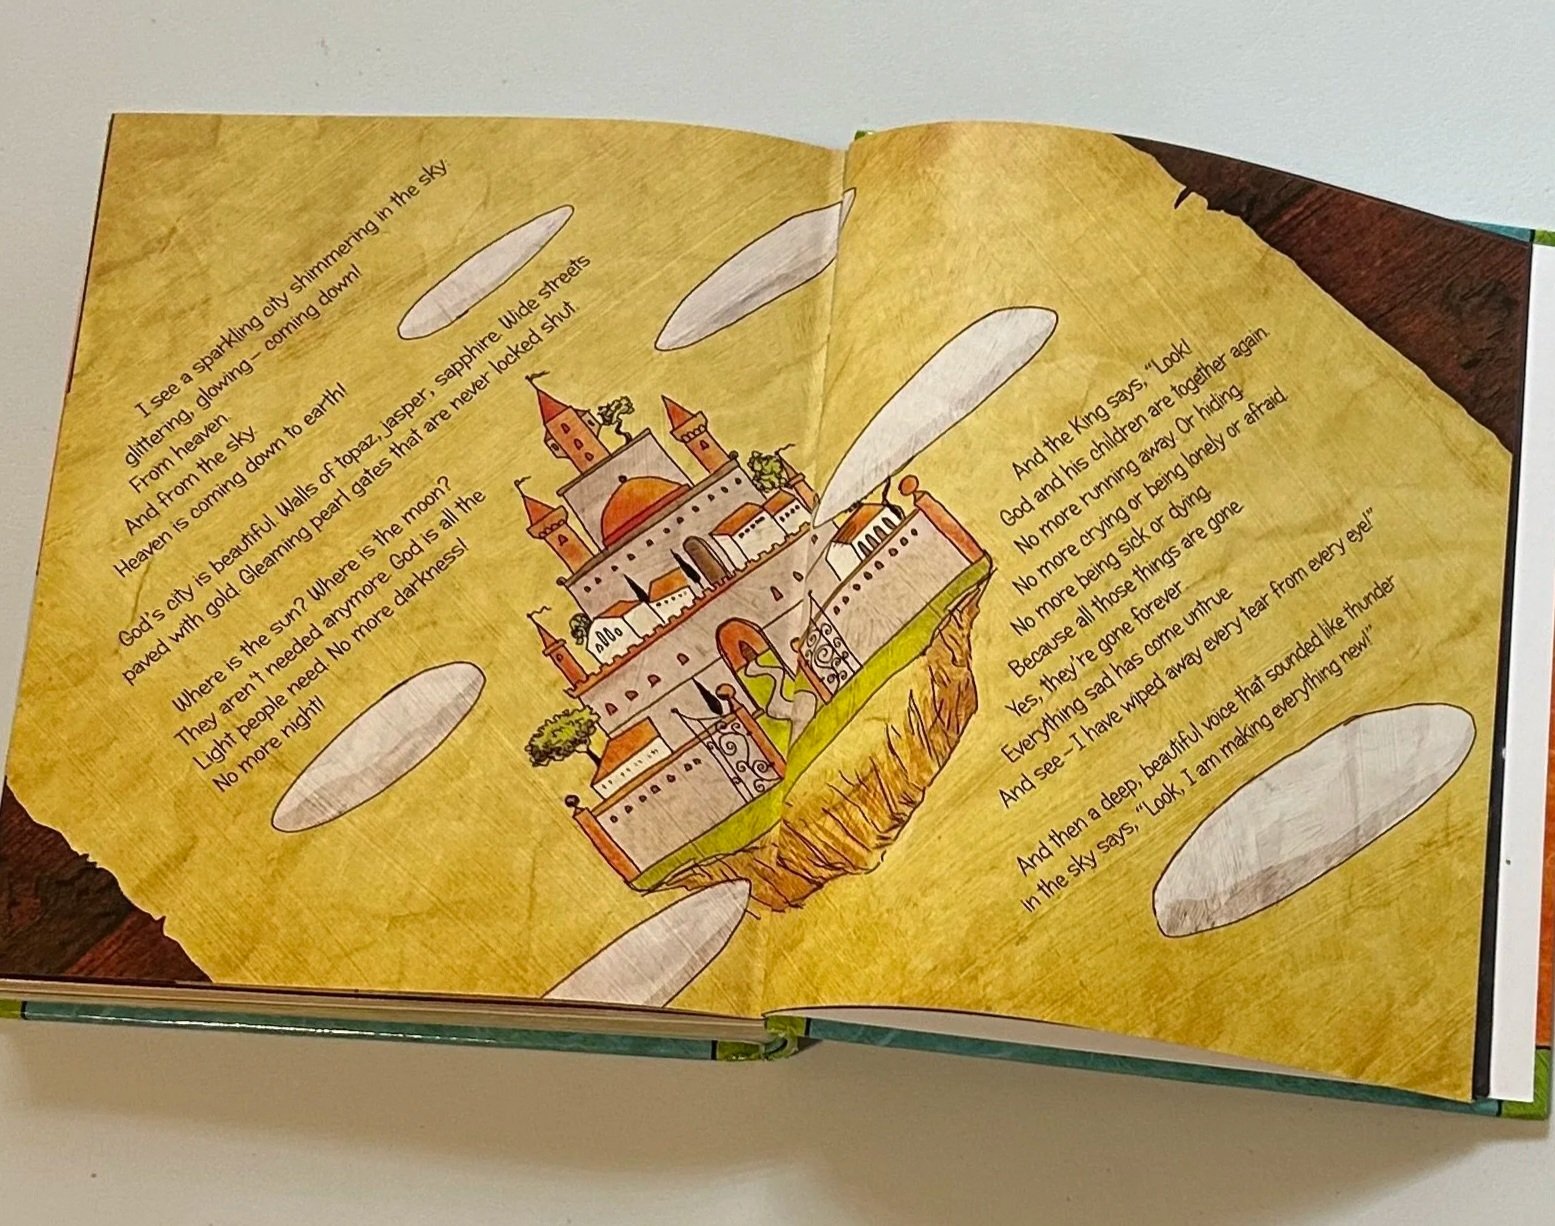 I see a sparkling city shimmering in the sky:
glittering, glowing – coming down!
From heaven.
And from the sky.
Heaven is coming down to earth!
God's city is beautiful. Walls of topaz, jasper, sapphire. Wide streets
paved with gold. Gleaming pearl gates that are never locked shut.
Where is the sun? Where is the moon?
They aren't needed anymore. God is all the
Light people need. No more darkness!
No more night!
And the King says, "Look!
God and his children are together again.
No more running away. Or hiding.
No more crying or being lonely or afraid.
No more being sick or dying.
Because all those things are gone.
Yes, they're gone forever.
Everything sad has come untrue.
And see – I have wiped away every tear from every eye!"
And then a deep, beautiful voice that sounded like thunder
in the sky says, "Look, I am making everything new!"